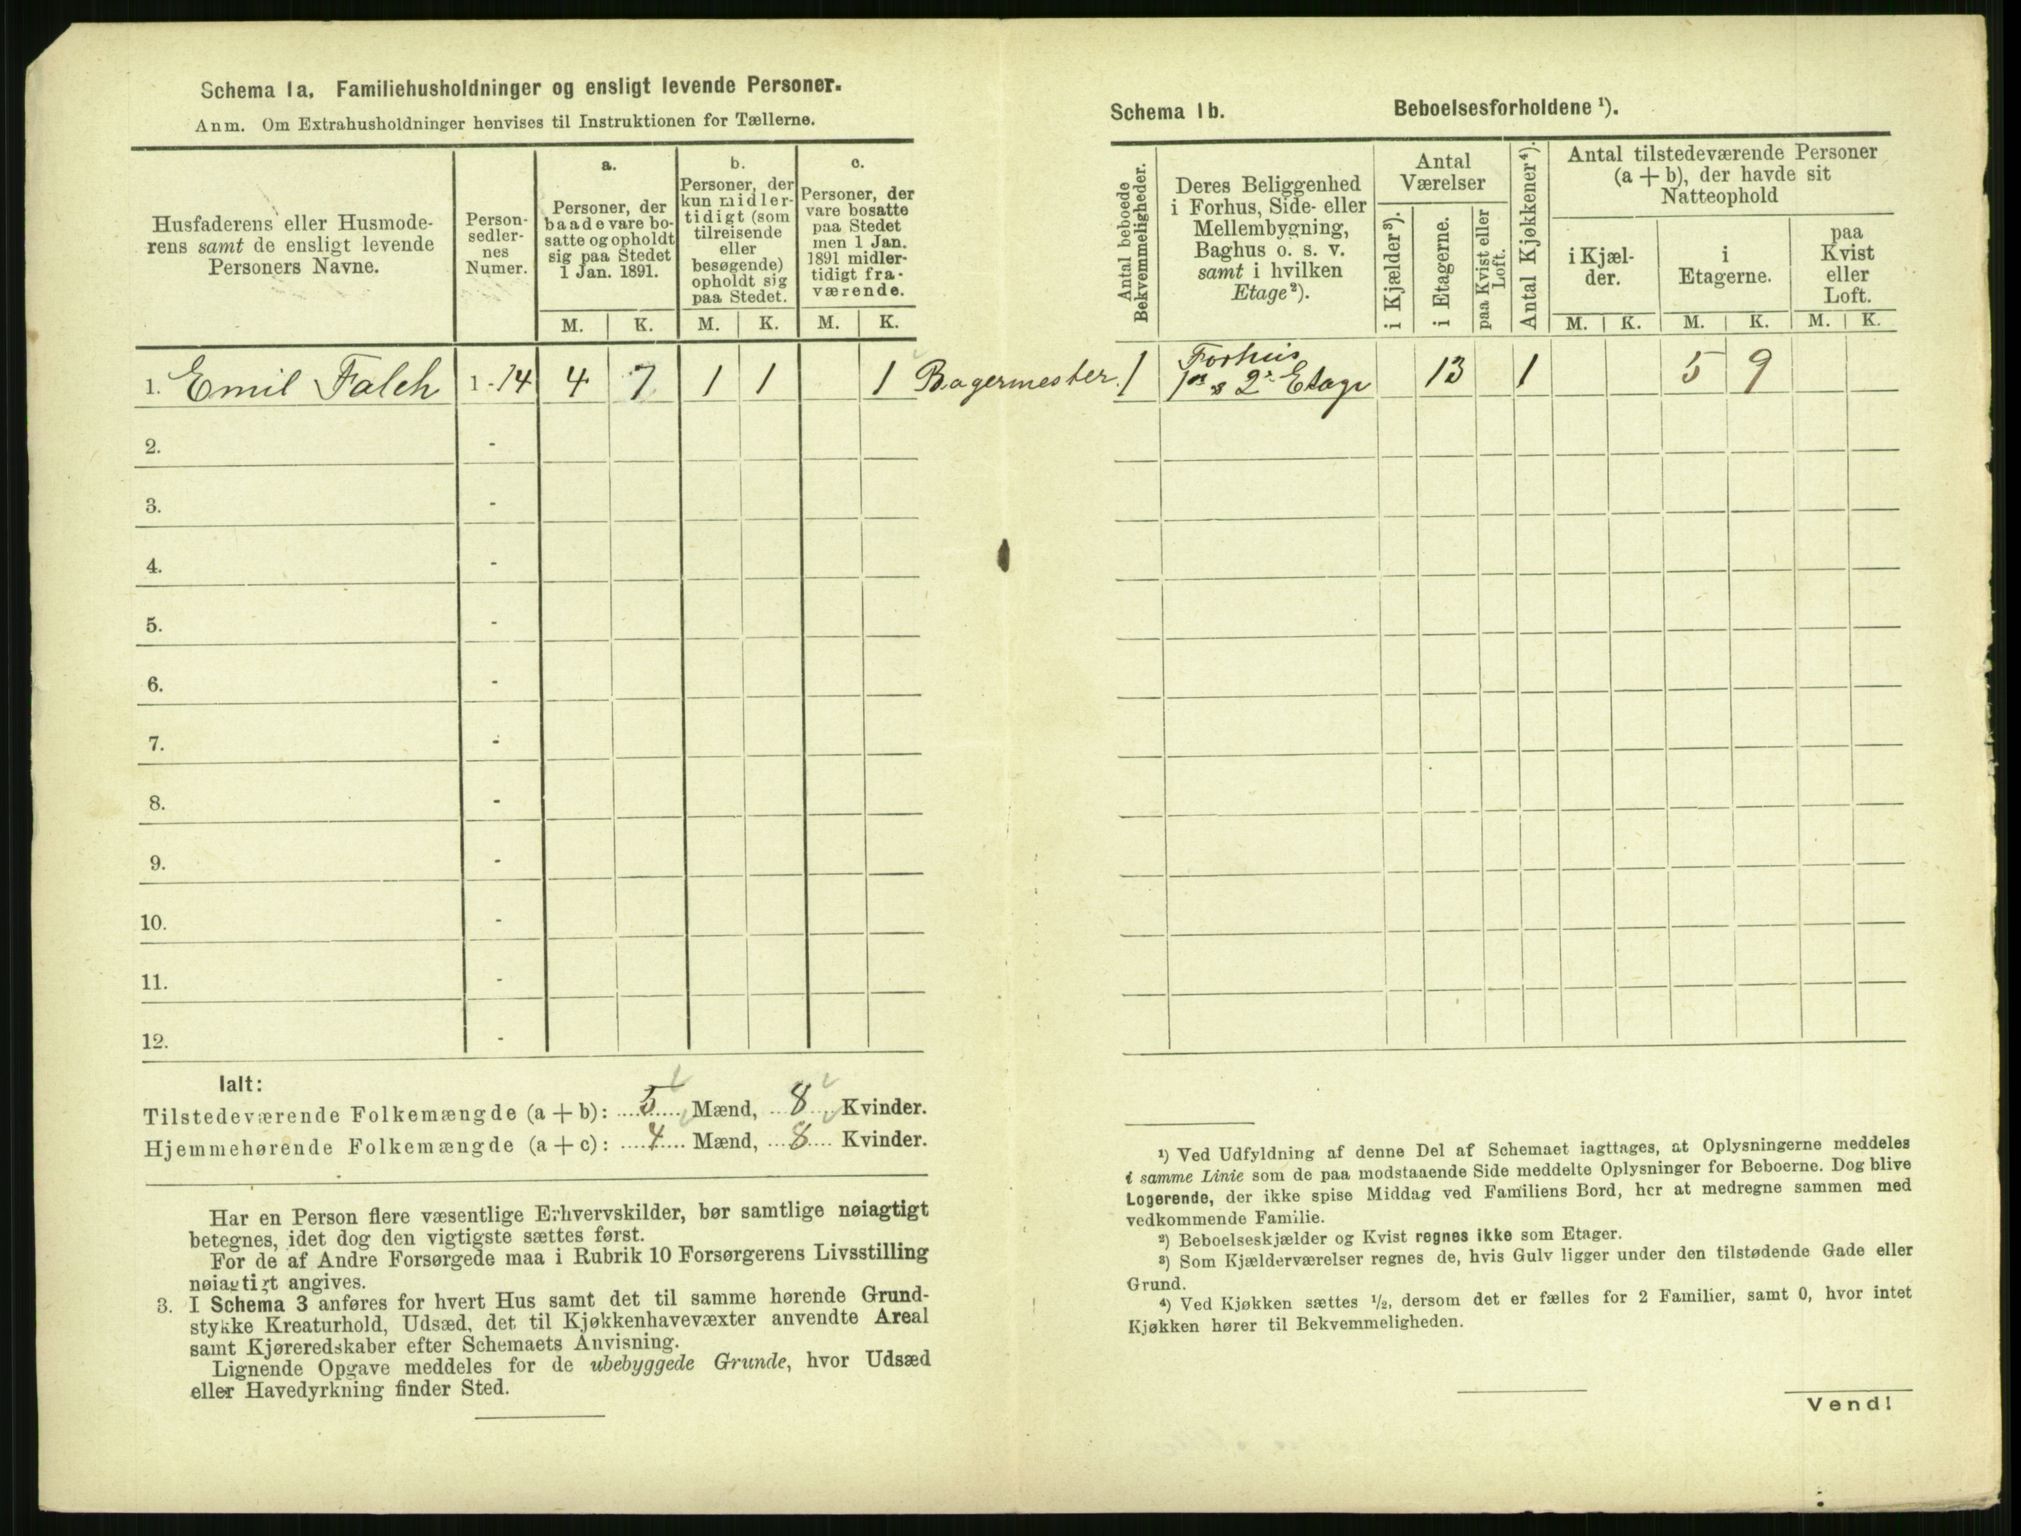 Schema 1a. Familiehusholdninger og ensligt levende Personer.
Anm. Om Extrahusholdninger henvises til Instruktionen for Tællerne.
Husfaderens eller Husmode-
rens samt de ensligt levende
Personers Navne.
Person-
sedler-
nes
Numer.
a.
Personer, der
baade vare bo-
satte og opholdt
sig paa Stedet
1 Jan. 1891.
b.
Personer, der
kun midler-
tidigt (som
tilreisende
eller
besøgende)
opholdt sig
paa Stedet.
c.
Personer, der
vare bosatte
paa Stedet
men 1 Jan.
1891 midler-
tidigt fra-
værende.
M. K. M. K. M. K.
1. Emil Falch 1 - 14 4 7 1 1 1 Bagermester
2. -
3. -
4. -
5. -
6. -
7. -
8. -
9. -
10. -
11. -
12. -
Ialt:
Tilstedeværende Folkemængde (a + b): 5 Mænd, 8 Kvinder.
Hjemmehørende Folkemængde (a + c): 4 Mænd, 8 Kvinder.
Har en Person flere væsentlige Erhvervskilder, bør samtlige nøiagtigt
betegnes, idet dog den vigtigste sættes først.
For de af Andre Forsørgede maa i Rubrik 10 Forsørgerens Livsstilling
nøiagtigt angives.
3. I Schema 3 anføres for hvert Hus samt det til samme hørende Grund-
stykke Kreaturhold, Udsæd, det til Kjøkkenhavevæxter anvendte Areal
samt Kjøreredskaber efter Schemaets Anvisning.
Lignende Opgave meddeles for de ubebyggede Grunde, hvor Udsæd
eller Havedyrkning finder Sted.
Schema 1b. Beboelsesforholdene ¹).
Antal beboede
Bekvemmeligheder.
Deres Beliggenhed
i Forhus, Side- eller
Mellembygning,
Baghus o. s. v.
samt i hvilken
Etage²).
Antal
Værelser
i Kjælder³).
i Etagerne.
paa Kvist eller
Loft.
Antal Kjøkkener⁴).
Antal tilstedeværende Personer
(a + b), der havde sit
Natteophold
i Kjæl-
der.
i
Etagerne.
paa
Kvist
eller
Loft.
M. K. M. K. M. K.
1 Forhus 13 1 5 9
2 Etage
¹) Ved Udfyldning af denne Del af Schemaet iagttages, at Oplysningerne meddeles
i samme Linie som de paa modstaaende Side meddelte Oplysninger for Beboerne. Dog blive
Logerende, der ikke spise Middag ved Familiens Bord, her at medregne sammen med
vedkommende Familie.
²) Beboelseskjælder og Kvist regnes ikke som Etager.
³) Som Kjælderværelser regnes de, hvis Gulv ligger under den tilstødende Gade eller
Grund.
⁴) Ved Kjøkken sættes ¹/₂, dersom det er fælles for 2 Familier, samt 0, hvor intet
Kjøkken hører til Bekvemmeligheden.
Vend!